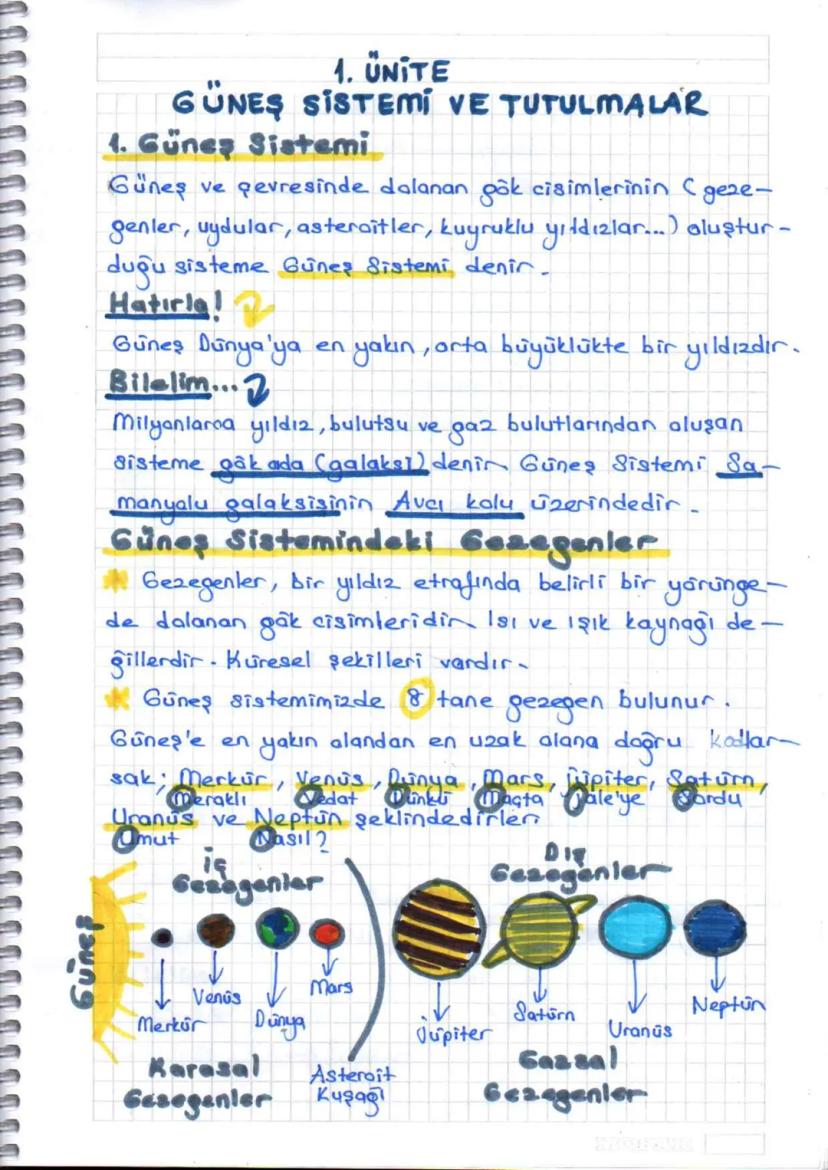 1. ÜNİTE
GÜNEŞ SİSTEMİ VE TUTULMALAR
1. Güneş Sistemi
Güneş ve çevresinde dolanan gök cisimlerinin (geze-
genler, uydular, asteroitler, kuyruklu yıldızlar...) oluştur-
duğu sisteme Güneş Sistemi denir.
Hatırla!
Güneş Dünya'ya en yakın, orta büyüklükte bir yıldızdır.
Bilelim...
Milyonlarca yıldız, bulutsu ve gaz bulutlarından oluşan
sisteme gök ada (galaksi) denir. Güneş Sistemi Sa-
manyolu galaksisinin Avcı kolu üzerindedir.
Güneş Sistemindeki Gezegenler
* Gezegenler, bir yıldız etrafında belirli bir yörünge-
de dolanan gök cisimleridir. Isı ve ışık kaynağı de-
ğillerdir. Küresel şekilleri vardır.
* Güneş sistemimizde 8 tane gezegen bulunur.
Güneş'e en yakın olandan en uzak olana doğru kodlar-
sak; Merkür, Venüs, Dünya, Mars, Jüpiter, Satürn,
Meraklı Vedat Dünkü Maçta Jale'ye Sordu
Uranüs ve Neptün şeklindedirler.
Umut Nasıl?
İç Gezegenler
Dış Gezegenler
Güneş
Merkür
Venüs
Dünya
Mars
Jüpiter
Satürn
Uranüs
Neptün
Karasal Gezegenler
Asteroit Kuşağı
Gazsal Gezegenler